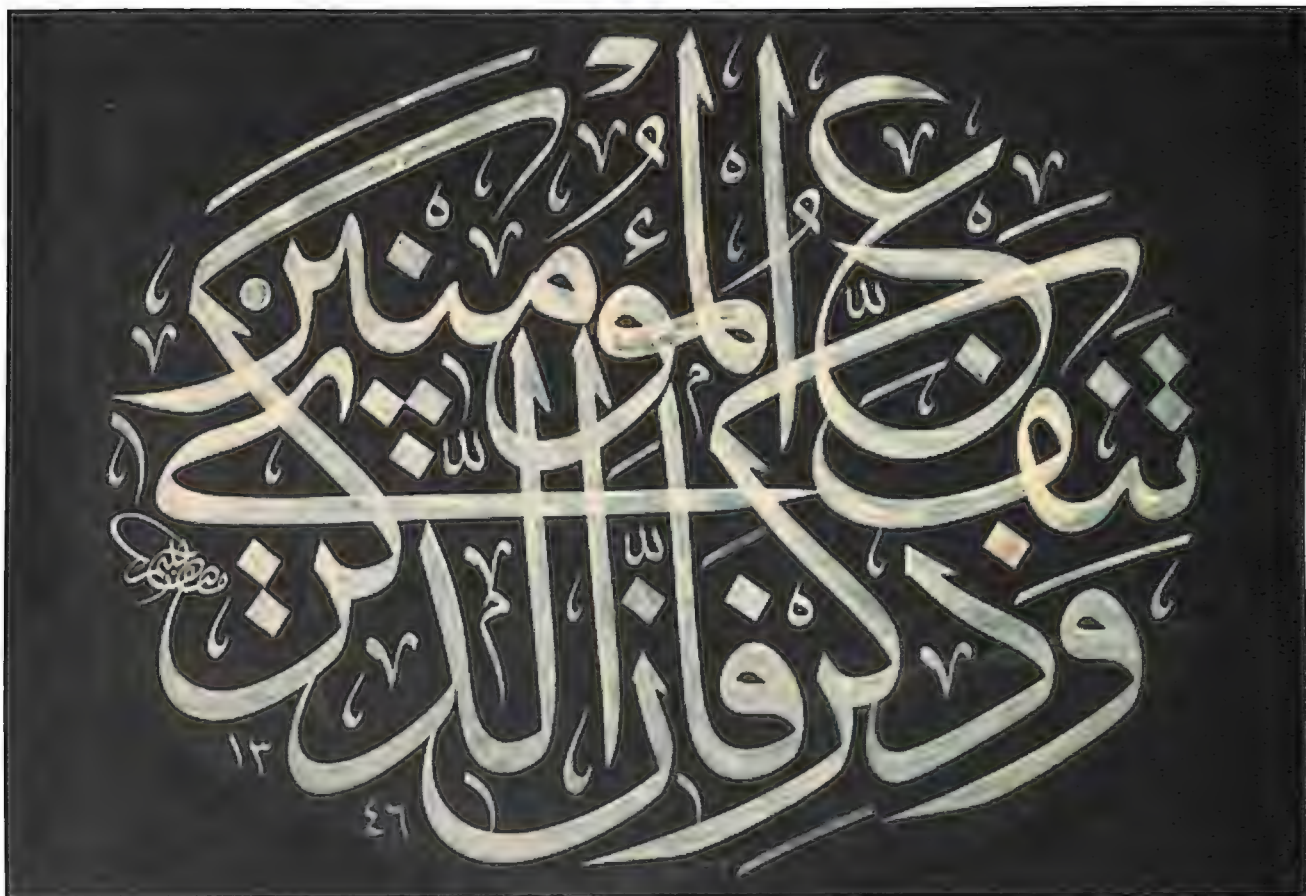 وَذَكِّرْ فَإِنَّ الذِّكْرَىٰ
تَنْفَعُ الْمُؤْمِنِينَ
١٣
٤٦